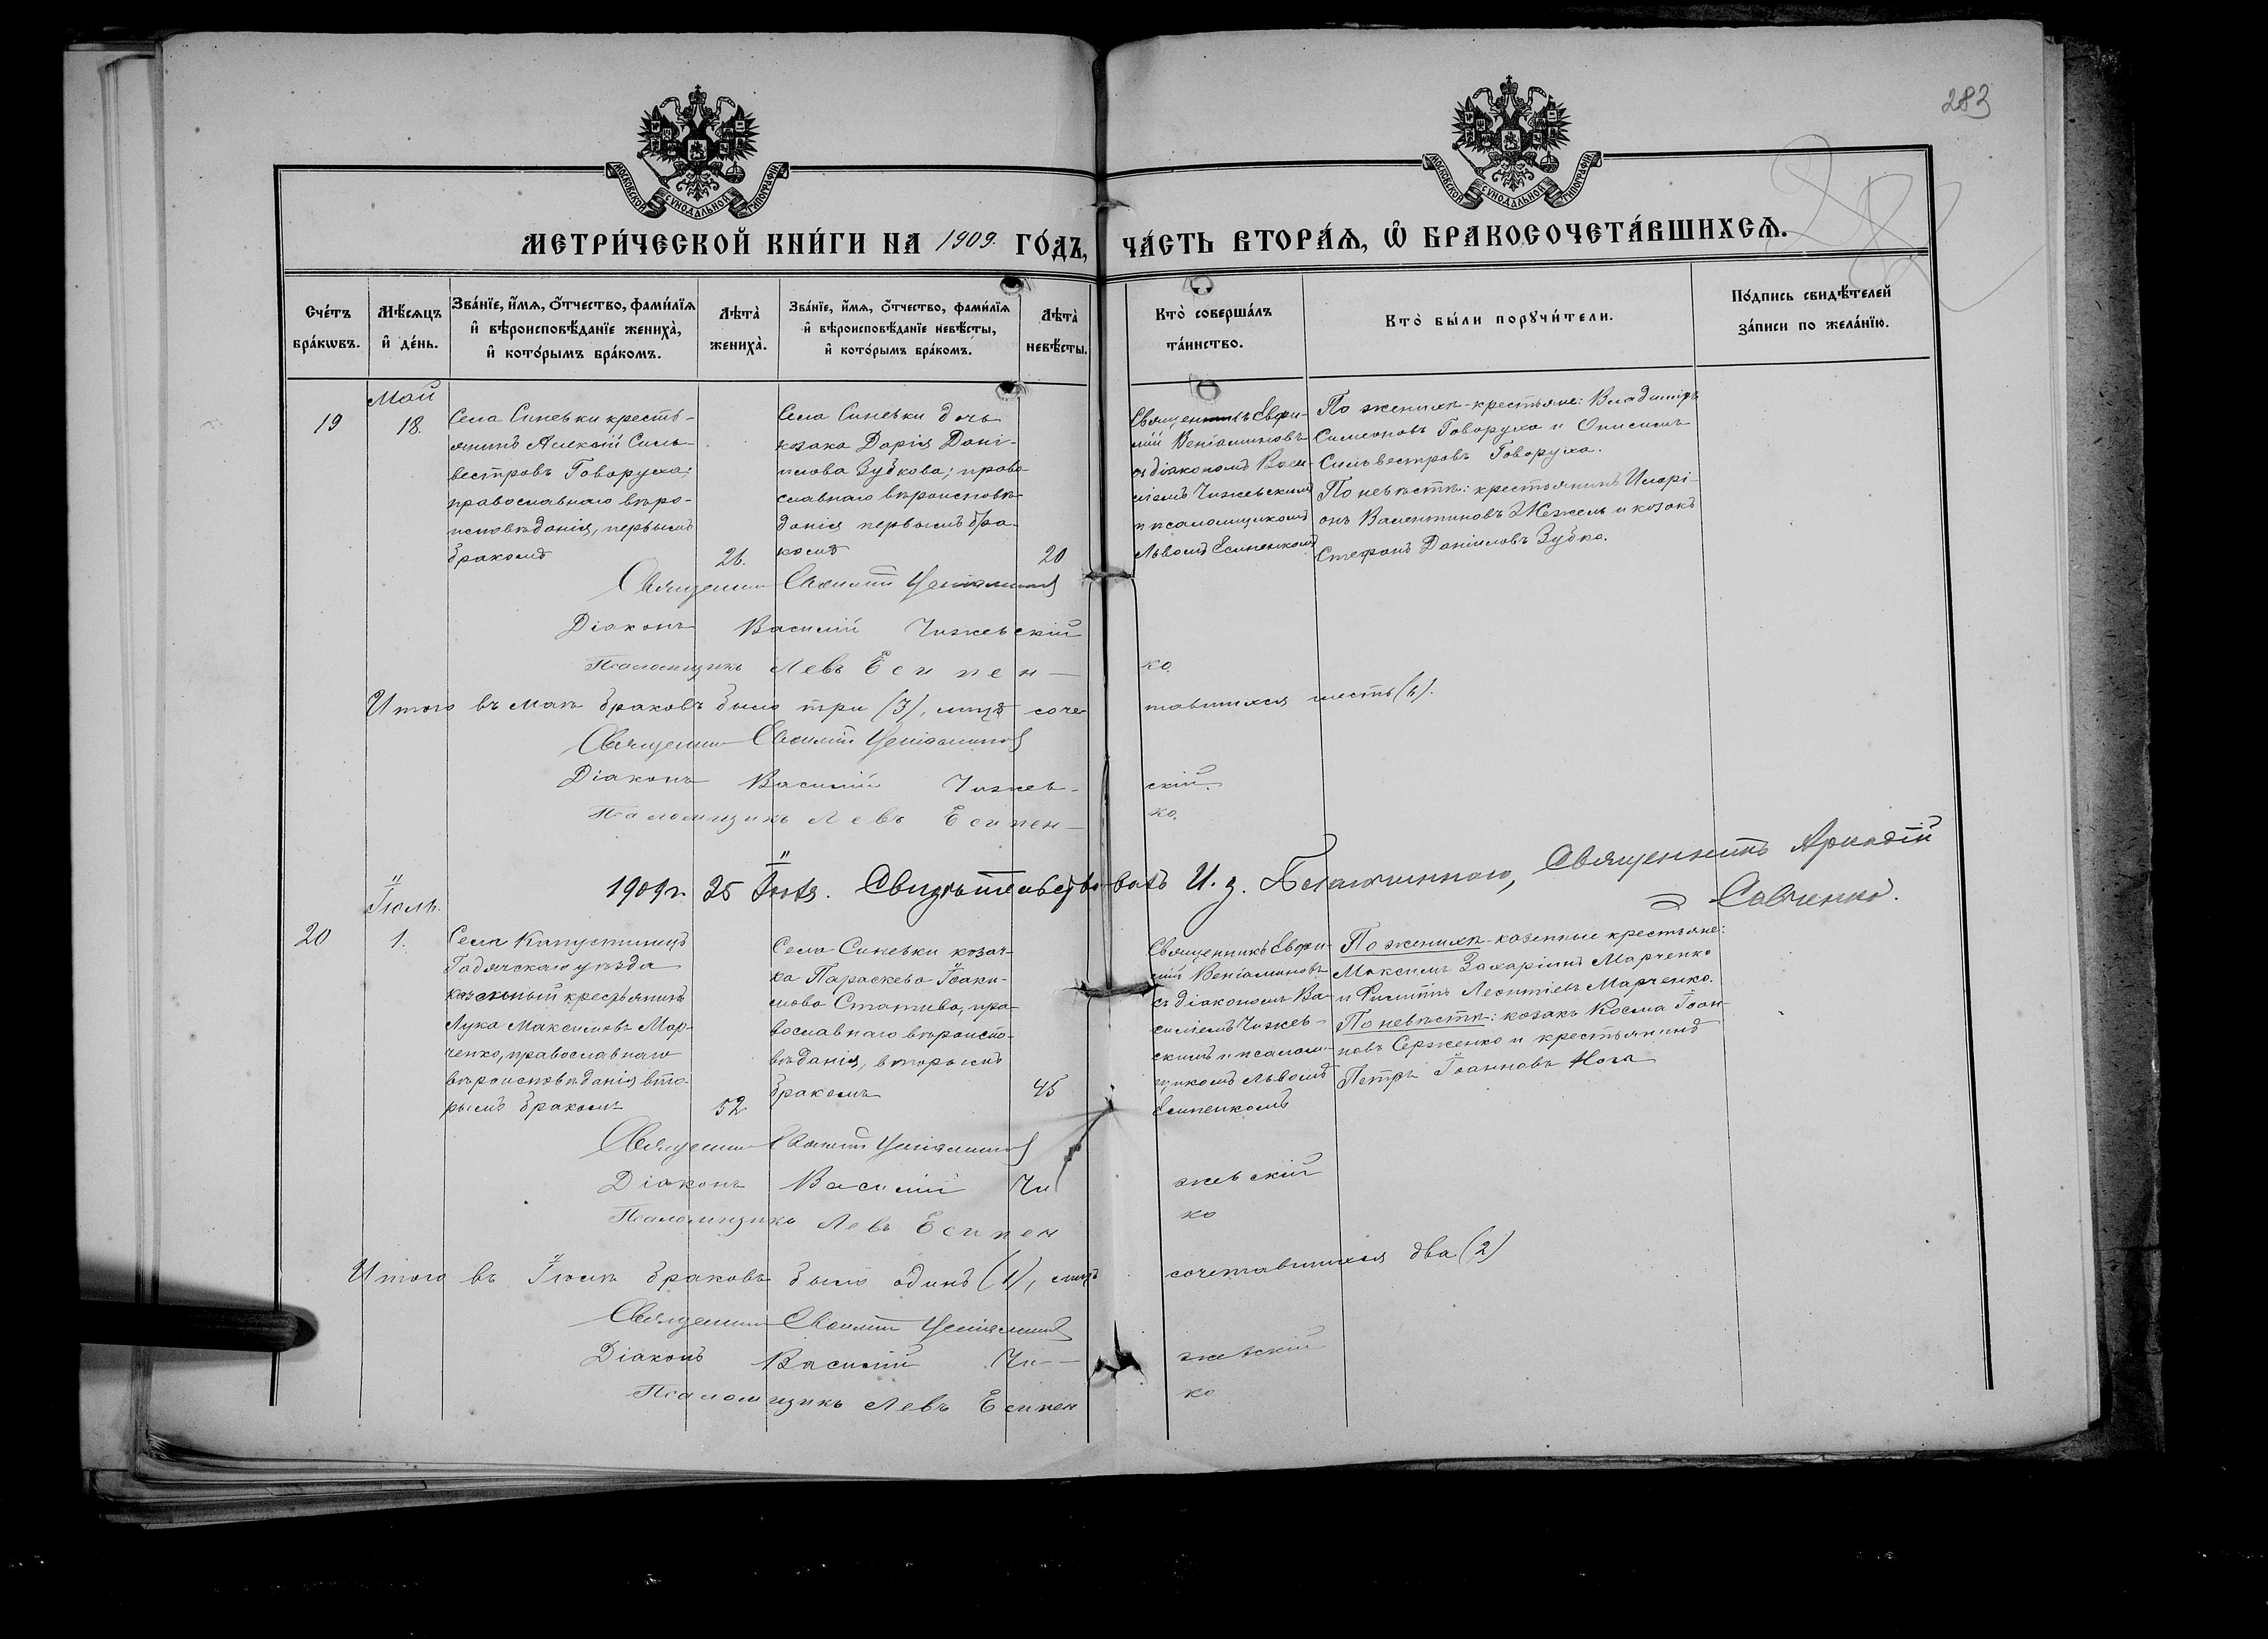 283
МОСКОВСКОЙ СѴНОДАЛЬНОЙ ТИПОГРАФІИ.
МОСКОВСКОЙ СѴНОДАЛЬНОЙ ТИПОГРАФІИ.
МЕТРИ́ЧЕСКОЙ КНИ́ГИ НА 1909. ГО́ДЪ, ЧА́СТЬ ВТОРА́Ѧ, Ѽ БРАКОСОЧЕТА́ВШИХСѦ.
Сче́тъ
бра́кωвъ.
Мѣ́сѧцъ
и҆ де́нь.
Зва́нїе, и҆́мѧ, ѻ҆́тчество, фами́лїѧ
и҆ вѣроисповѣ́данїе жениха̀,
и҆ кото́рымъ бра́комъ.
Лѣта̀
жениха̀.
Зва́нїе, и҆́мѧ, ѻ҆́тчество, фами́лїѧ
и҆ вѣроисповѣ́данїе невѣ́сты,
и҆ кото́рымъ бра́комъ.
Лѣта̀
невѣ́сты.
Кто̀ соверша́лъ
та́инство.
Кто̀ бы́ли порꙋчи́тели.
По́дпись свидѣ́телей
за́писи по жела́нїю.
Май
19
18.
Села Синевки кресть-
янинъ Алексій Силь-
вестровъ Говоруха;
православнаго вѣро-
исповѣданія, первымъ
бракомъ
26.
Села Синевки дочь
козака Дарія Дані-
илова Зубкова; право
славнаго вѣроисповѣ-
данія первымъ бра-
комъ
20
Священникъ Евфи-
мій Веніаминовъ
съ діакономъ Васи-
ліемъ Чижевскимъ
и псаломщикомъ
Львомъ Есипенкомъ
По женихѣ-крестьяне: Владиміръ
Симеоновъ Говоруха и Онисимъ
Сильвестровъ Говоруха.
По невѣстѣ: крестьянинъ Иларі-
онъ Валентиновъ Жежель и козакъ
Стефанъ Даніиловъ Зубко.
Священникъ Евфимій Веніаминовъ
Діаконъ Василій Чижевскій
Псаломщикъ Левъ Есипен-ко.
Итого въ маѣ браковъ было три (3), лицъ сочетавшихся шесть (6).
Священникъ Евфимій Веніаминовъ
Діаконъ Василій Чижев-скій.
Псаломщикъ Левъ Есипен-ко.
1909 г. 25 Іюля. Свидѣтельствовалъ И. д. Благочиннаго, Священникъ Аркадій
Савченко.
Іюль.
20
1.
Села Капустинецъ
Гадячскаго уѣзда
казенный крестьянинъ
Лука Максимовъ Мар-
ченко, православнаго
вѣроисповѣданія вто-
рымъ бракомъ
52
Села Синевки козач-
ка Параскева Іоаки-
мова Статива, пра-
вославнаго вѣроиспо-
вѣданія, вторымъ
бракомъ
45
Священникъ Евфи-
мій Веніаминовъ
съ діакономъ Ва-
силіемъ Чижев-
скимъ и псалом-
щикомъ Львомъ
Есипенкомъ
По женихѣ-казенные крестьяне:
Максимъ Захаріинъ Марченко
и Филиппъ Леонтіевъ Марченко.
По невѣстѣ: козакъ Косма Іоан-
новъ Серженко и крестьянинъ
Петръ Іоанновъ Нога
Священникъ Евфимій Веніаминовъ
Діаконъ Василій Чижевскій
Псаломщикъ Левъ Есипенко
Итого въ Іюлѣ браковъ было одинъ (1), лицъ сочетавшихся два (2)
Священникъ Евфимій Веніаминовъ
Діаконъ Василій Чи-жевскій
Псаломщикъ Левъ Есипенко